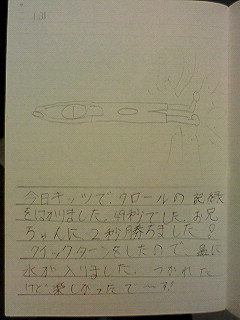 今日キッツで、クロールの記録
をはかりました。49秒でした。お兄
ちゃんに、2秒勝ちました。
クイックターンをしたので、鼻に
水が入りました。つかれた
けど楽しかったで〜す!